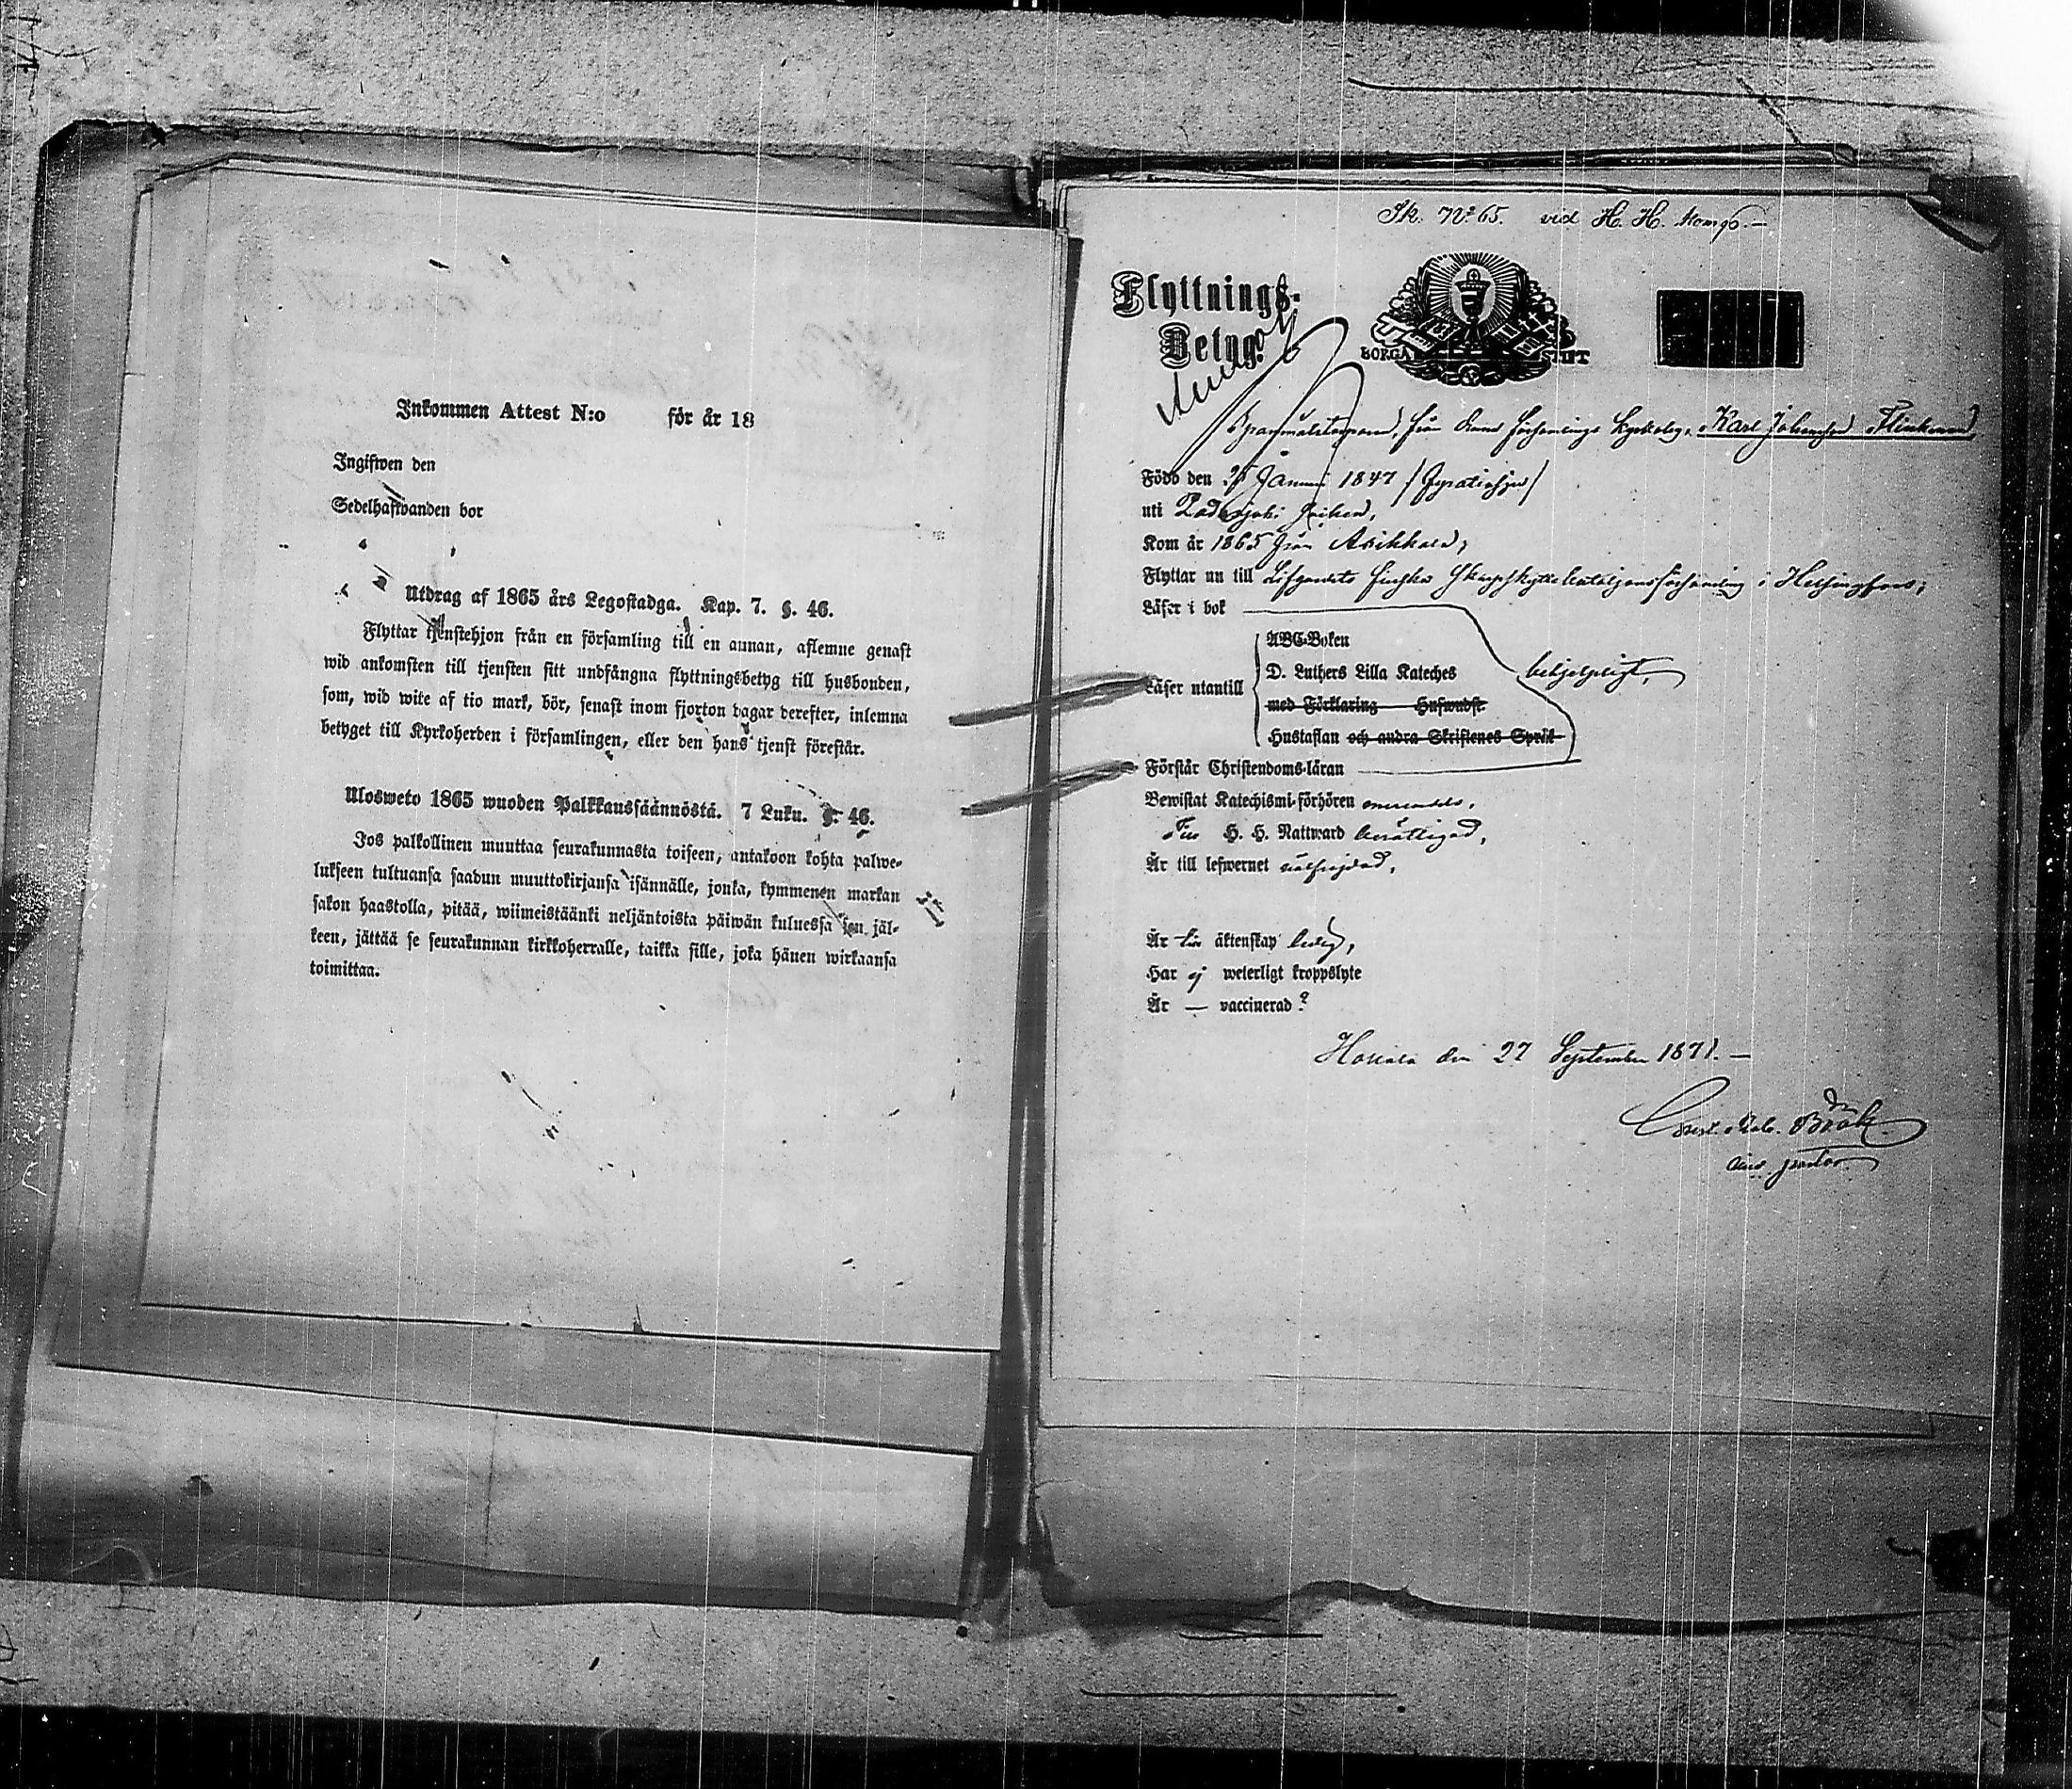 Inkommen Attest N:o för år 18
Ingifwen den
Sedelhafwanden bor
Utdrag af 1865 års Legostadga. Kap. 7. §. 46.
Flyttar tjenstehjon från en församling till en annan, aflemne genast
wid ankomsten till tjensten sitt undfångna flyttningsbetyg till husbonden,
som, wid wite af tio mark, bör, senast inom fjorton dagar derefter, inlemna
betyget till Kyrkoherden i församlingen, eller den hans tjenst förestår.
Ulosweto 1865 wuoden Palkkaussäännöstä. 7 Luku. §. 46.
Jos palkollinen muuttaa seurakunnasta toiseen, antakoon kohta palwe-
lukseen tultuansa saadun muuttokirjansa isännälle, jonka, kymmenen markan
sakon haastolla, pitää, wiimeistäänki neljäntoista päiwän kuluessa sen jäl-
keen, jättää se seurakunnan kirkkoherralle, taikka sille, joka hänen wirkaansa
toimittaa.
N:o 65. vid H. H.
Flyttnings-
Betyg.
BORGÅ STIFT
från församlings Karl Johansson Flinkman
Född den 25 Januari 1847
uti Padasjoki socken,
Kom år 1865 från Asikkala;
Flyttar nu till Lifgardets Finska Skarpskyttebataljons församling i Helsingfors;
Läser i bok
ABC-Boken
D. Luthers Lilla Kateches
Läser utantill
behjelpligt,
med Förklaring Huswudst.
Hustaflan och andra Skriftenes Språk
Förstår Christendoms-läran
Bewistat Katechismi-förhören
H. H. Nattward berättigad,
Är till lefwernet välfrejdad,
Är till äktenskap ledig,
Har ej weterligt kroppslyte
Är — vaccinerad?
Hollola den 27 September 1871. —
Bräk.